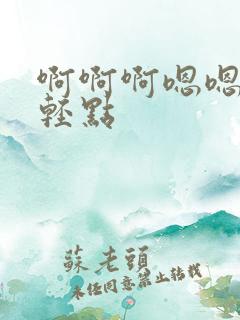 啊啊啊嗯嗯
輕點
蘇老頭
未经同意禁止转载